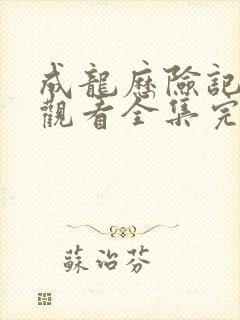 成龍歷險記
觀看全集完
蘇治芬